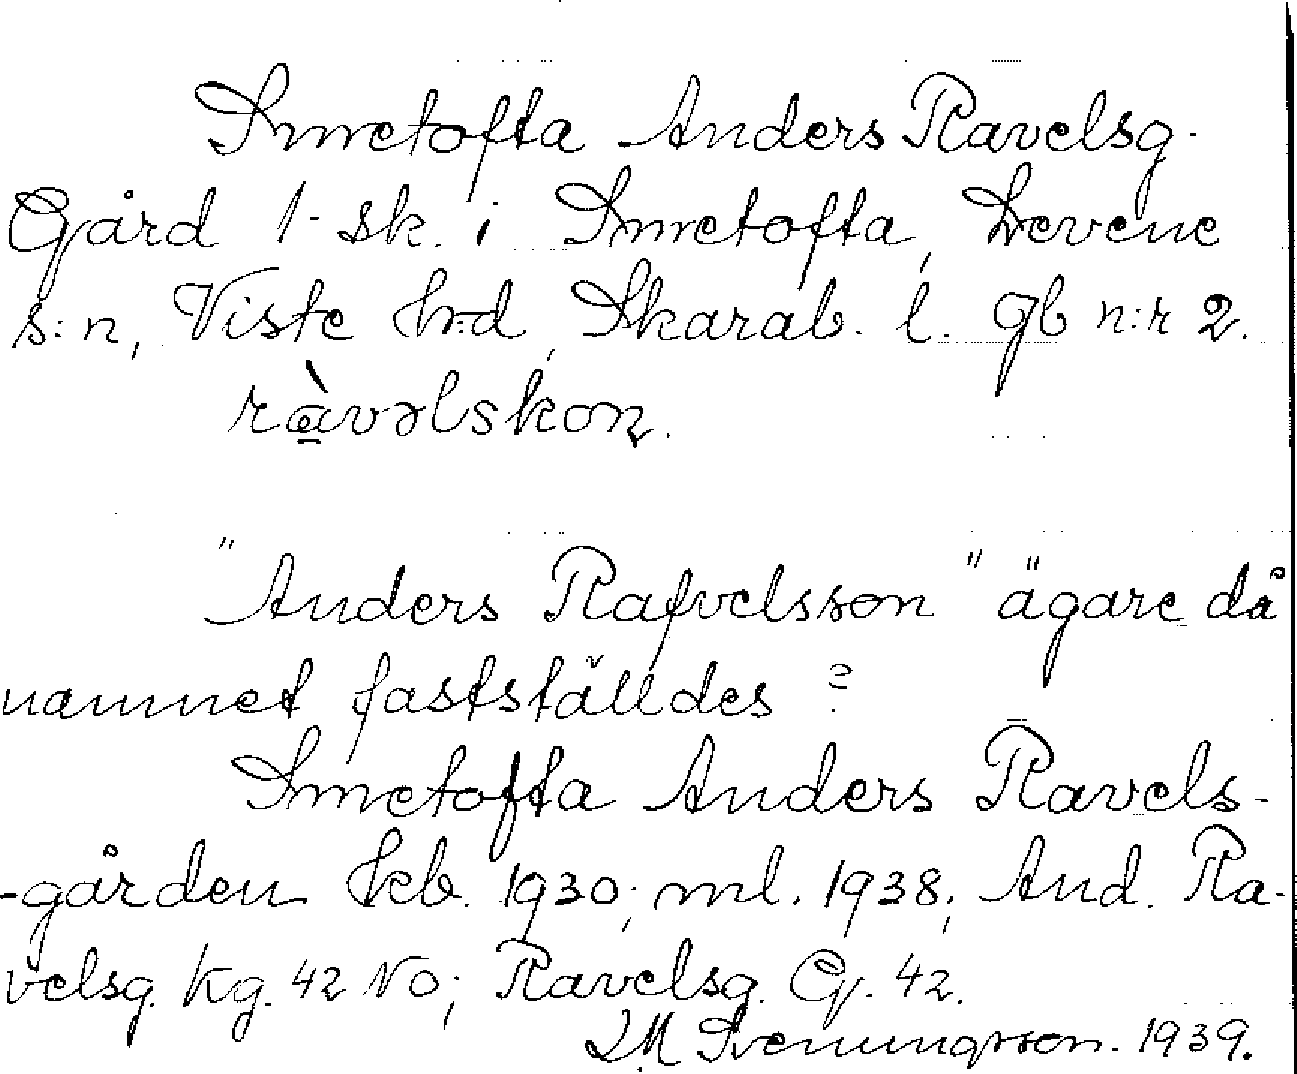 Smetofta Anders Ravelsg.
Gård 1 sk. i Smetofta, Levene
s:n, Viste h:d, Skarab. l. Jb n:r 2.
ràvəlskon.
"Anders Rafvelsson" ägare då
namnet fastställdes?
Smetofta Anders Ravels-
-gården kb. 1930; ml. 1938; And. Ra-
velsg. Kg. 42 NO; Ravelsg. G. 42.
Svenungsson. 1939.